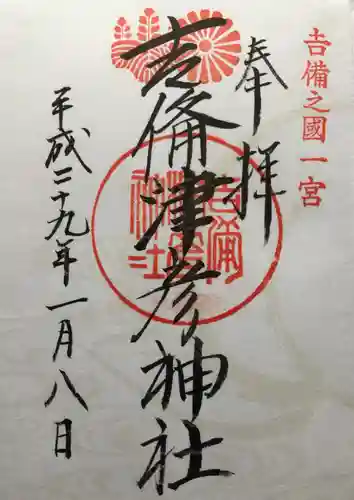 吉備之國一宮
奉拝
吉備津彦神社
平成二十九年一月八日